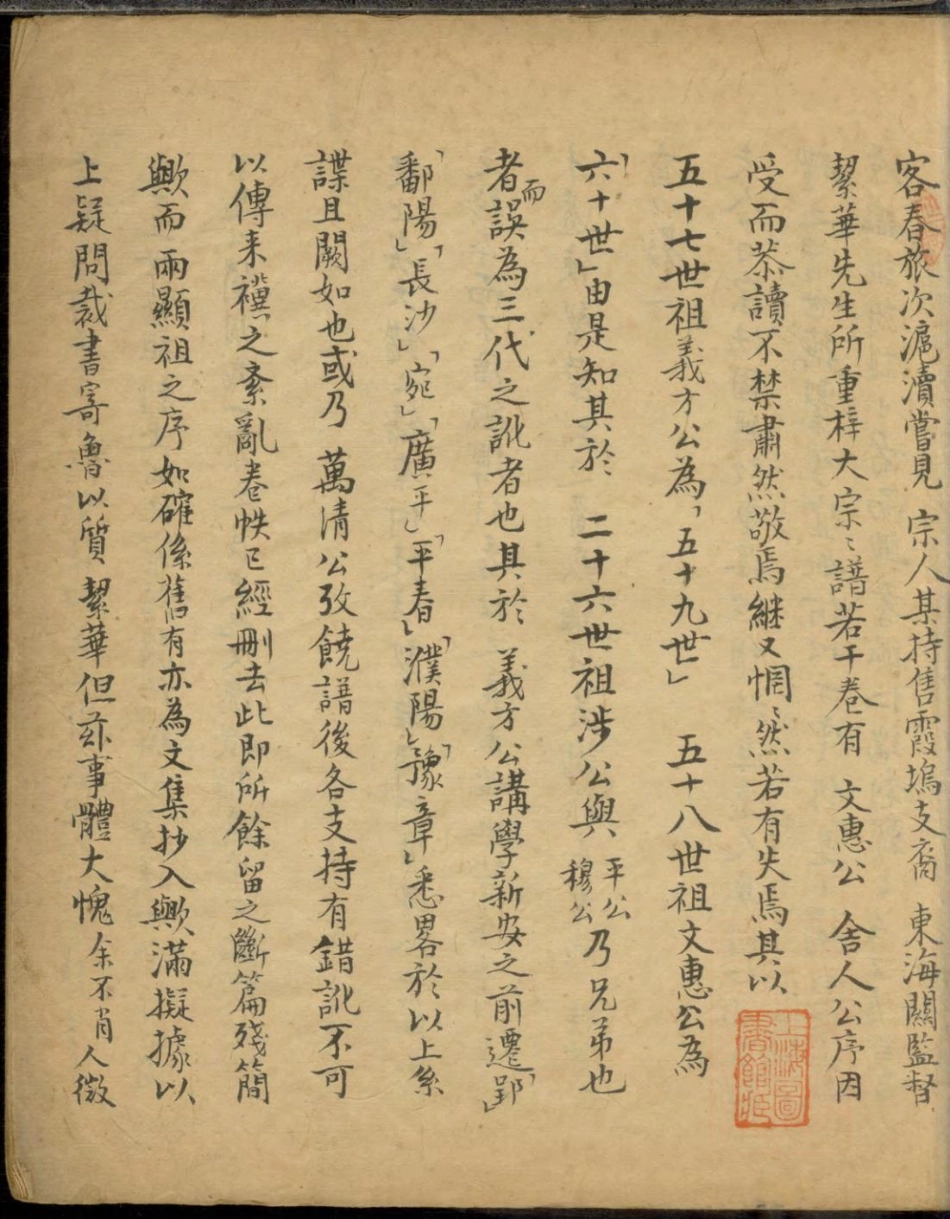 客春旅次滬瀆嘗見 宗人某持售霞塢支裔 東海關監督
絜華先生所重梓大宗〻譜若干卷有 文惠公 舍人公序因
受而恭讀不禁肅然敬焉継又惘〻然若有失焉其以
五十七世祖義方公為「五十九世」 五十八世祖文惠公為
「六十世」由是知其於 二十六世祖涉公與平公穆公乃兄弟也
者而誤為三代之訛者也其於 義方公講學新安之前遷「郢」
「鄱陽」「長沙」「宛」「廣平」「平春」「濮陽」「豫章」悉畧於以上系
諜且闕如也或乃 萬清公攷饒譜後各支持有錯訛不可
以傳来禩之紊亂卷帙已經刪去此即所餘留之斷篇殘簡
歟而 兩顯祖之序如確係舊有亦為文集抄入歟滿擬據以
上疑問裁書寄魯以質 絜華但茲事體大愧余不肖人微
上海圖書館藏